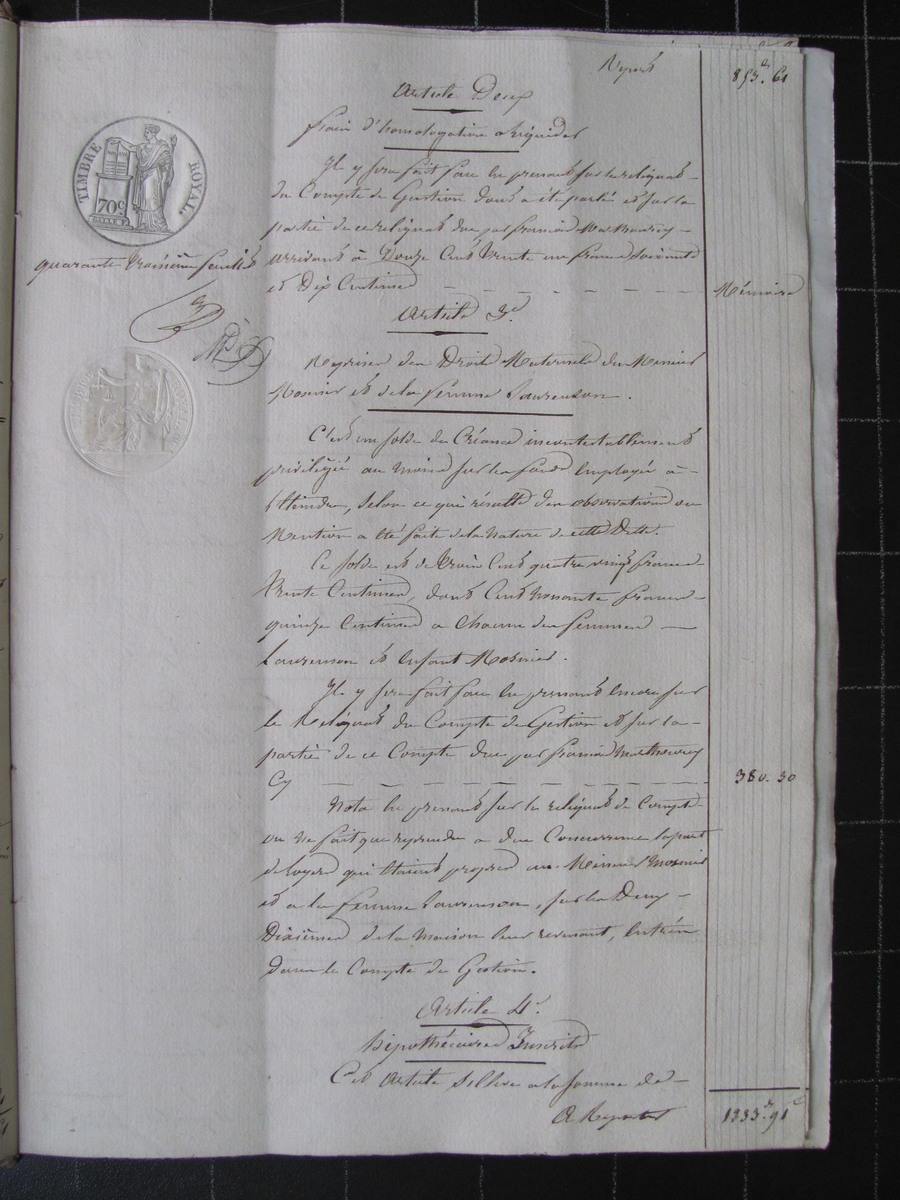 Report 853.f 61
Article Deux
frais d'homologation à liquider
Il y sera fait face en prenant sur le reliquat
du Compte de Gestion dont a été parlé et sur la
partie de ce reliquat due par françois
arrivant à Douze Cent trente un francs soixante
et Dix Centimes Mémoire
TIMBRE ROYAL.
70c
quarante troisième feuillet
Article 3.e
Reprises des Droits Maternels du Mineur
Mosnier et de la femme Laurenson.
C'est un solde de Créance incontestablement
privilégié au moins sur les fonds employés à
l'éteindre, selon ce qui résulte des observations où
Mention a été faite de la Nature de cette Dette.
Ce solde est de trois Cent quatre vingt francs
trente Centimes, dont Cent nonante francs
quinze Centimes à Chacun des femme
Laurenson et Enfant Mosnier.
Il y sera fait face en prenant encore sur
le Reliquat du Compte de Gestion et sur la
partie de ce Compte due par françois
Cy 380. 30
Nota en prenant sur le reliquat de Compte
on ne fait que reprendre à due Concurrence la part
de loyers qui étaient propres au Mineur Mosnier
et à la femme Laurenson, sur les Deux
Dixièmes de la Maison leur revenant, entrés
dans le Compte de Gestion.
Article 4.e
hipothécaires Inscrits
Cet Article s'élève à la somme de
A Reporter 1233.f 91 c